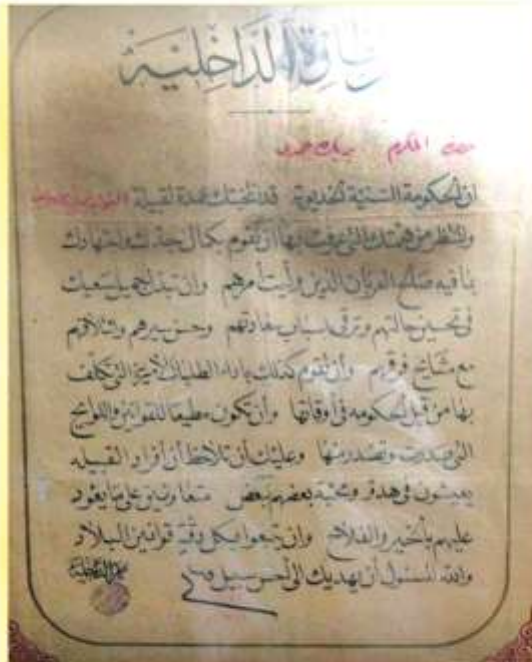 نظارة الداخلية
المكرم
ان الحكومة السنية الخديوية قد انتخبتك عمدة لقبيلة
والمنتظر من همتك التى عرفت بها ان تقوم بكمال جدك واجتهادك
بما فيه صلح العربان الذين وليت أمرهم وان تبذل جميل سعيك
فى تحسين حالتهم وترقى اسباب سعادتهم وحسن سيرهم وائتلافهم
مع مشايخ فرقهم وأن تقوم كذلك باداء الطلبات الأميرية التى تكلف
بها من قبل الحكومه فى أوقاتها وأن تكون مطيعا للقوانين واللوائح
التى صدرت وتصدر منها وعليك أن تلاحظ أن أفراد القبيله
يعيشون فى هدؤ ومحبة بعضهم بعض متعاونين على ما يعود
عليهم بالخير والفلاح وان يتبعوا بكل دقة قوانين البلاد
والله المسئول أن يهديك الى أحسن سبيل
ناظر الداخلية